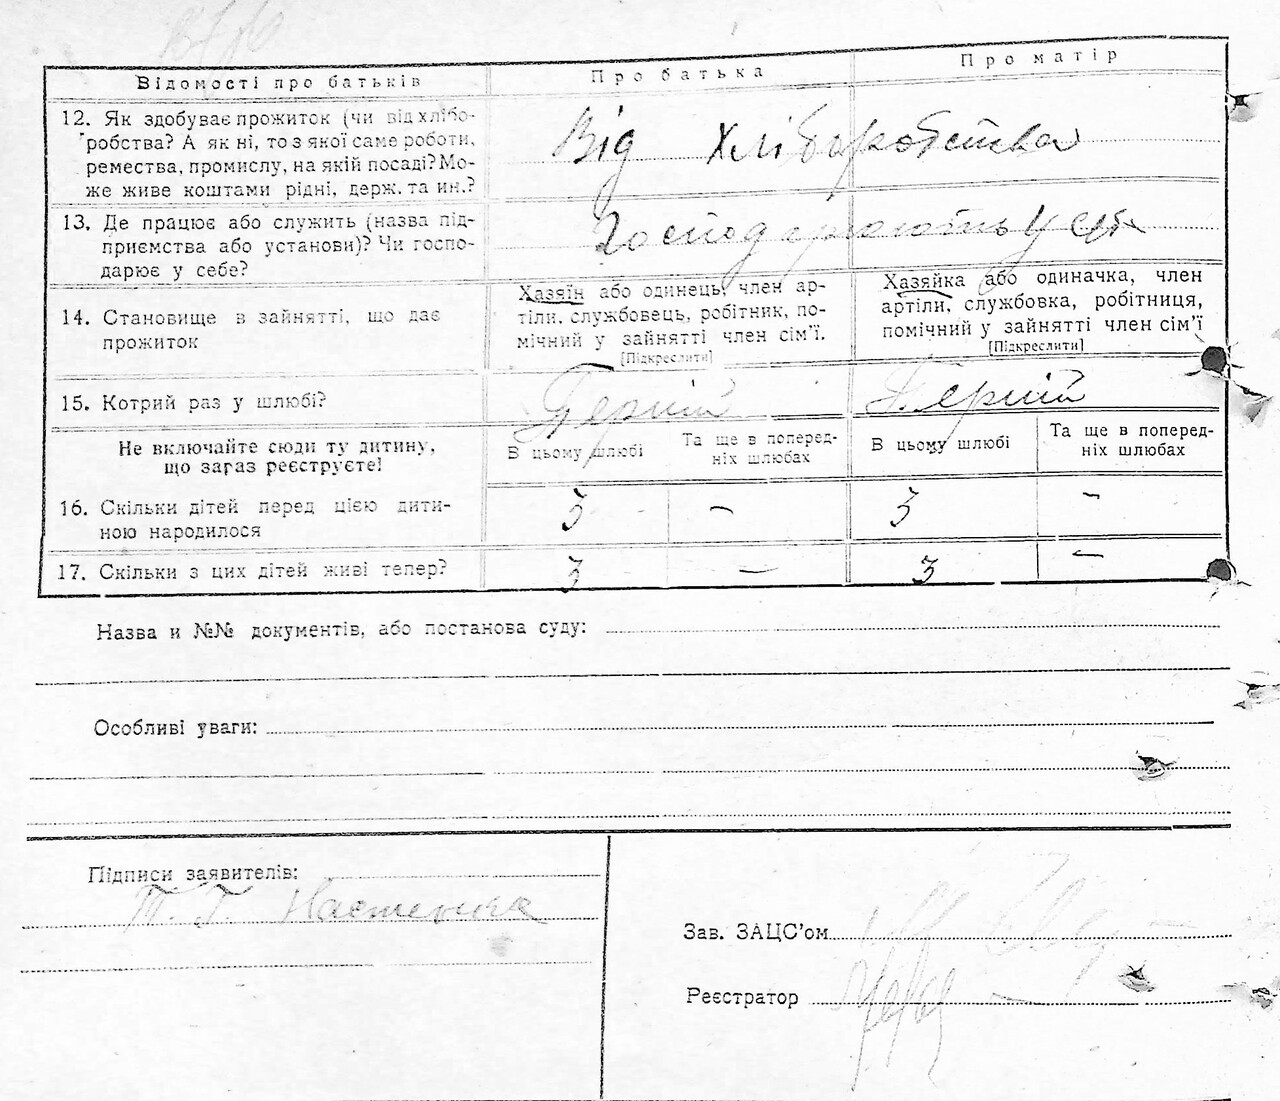 Відомості про батьків
Про батька
Про матір
12. Як здобуває прожиток (чи від хлібо-
робства? А як ні, то з якої саме роботи,
ремества, промислу, на якій посаді? Мо-
же живе коштами рідні, держ. та ин.?
Від Хліборобства
13. Де працює або служить (назва під-
приємства або установи)? Чи госпо-
дарює у себе?
Господарюють у себе
14. Становище в зайнятті, що дає
прожиток
Хазяїн або одинець, член ар-
тіли, службовець, робітник, по-
мічний у зайнятті член сім'ї.
[Підкреслити]
Хазяйка або одиначка, член
артіли, службовка, робітниця,
помічний у зайнятті член сім'ї
[Підкреслити]
15. Котрий раз у шлюбі?
Перший
Перший
Не включайте сюди ту дитину,
що зараз реєструєте!
В цьому шлюбі
Та ще в поперед-
ніх шлюбах
В цьому шлюбі
Та ще в поперед-
ніх шлюбах
16. Скільки дітей перед цією дити-
ною народилося
3 - 3 -
17. Скільки з цих дітей живі тепер?
3 - 3 -
Назва и №№ документів, або постанова суду:
Особливі уваги:
Підписи заявителів:
Т. Г. Настенка
Зав. ЗАЦС'ом
Реєстратор